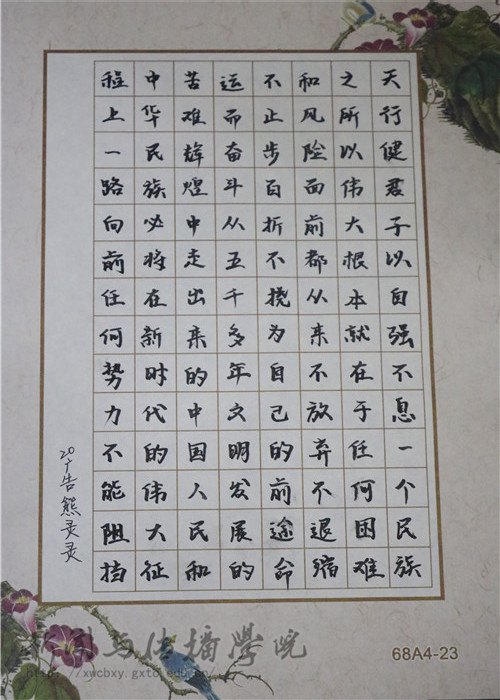 天行健君子以自强不息一个民族
之所以伟大根本就在于任何困难
和风险面前都从来不放弃不退缩
不止步百折不挠为自己的前途命
运而奋斗从五千多年文明发展的
苦难辉煌中走出来的中国人民和
中华民族必将在新时代的伟大征
程上一路向前任何势力不能阻挡
20广告熊灵灵
新闻与传播学院
http://xwcbxy.gxtc.edu.cn/
68A4-23